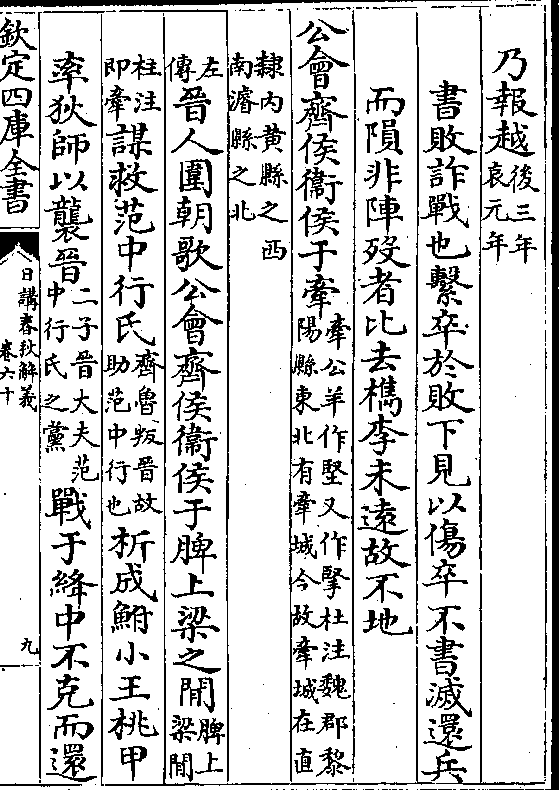 乃報越後三年哀元年
書敗詐戰也繫卒於敗下見以傷卒不書滅還兵
而隕非陣歿者比去檇李未遠故不地
公會齊侯衞侯于牽牽公羊作堅又作掔杜注魏郡黎陽縣東北有牽城今故牽城在直
隸內黄縣之西南濬縣之北
左傳晉人圍朝歌公會齊侯衞侯于脾上梁之閒脾上梁閒
杜注即牽謀救范中行氏齊魯叛晉故助范中行也析成鮒小王桃甲
率狄師以襲晉二子晉大夫范中行氏之黨戰于絳中不克而還
欽定四庫全書
日講春秋解義
卷六十
九